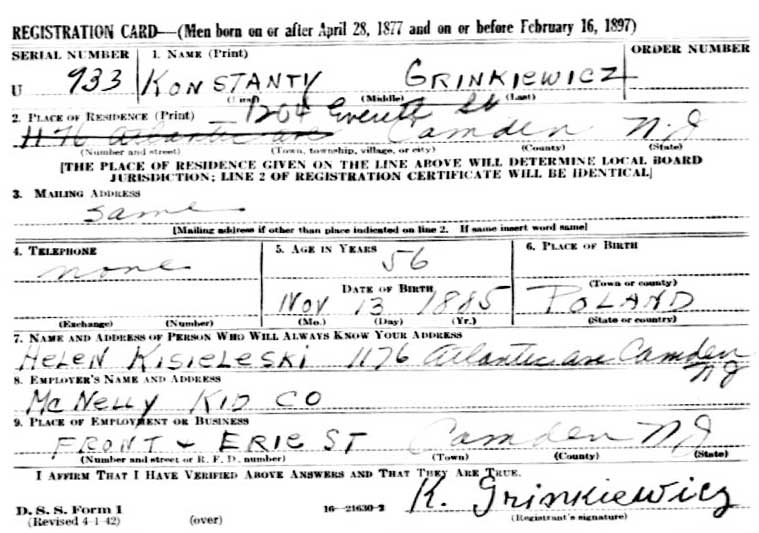 REGISTRATION CARD—(Men born on or after April 28, 1877 and on or before February 16, 1897)
SERIAL NUMBER 1. NAME (Print) ORDER NUMBER
U 933 KONSTANTY GRINKIEWICZ
(First) (Middle) (Last)
1204 Everett St
2. PLACE OF RESIDENCE (Print)
1176 Atlantic ave Camden N.J
(Number and street) (Town, township, village, or city) (County) (State)
[THE PLACE OF RESIDENCE GIVEN ON THE LINE ABOVE WILL DETERMINE LOCAL BOARD
JURISDICTION; LINE 2 OF REGISTRATION CERTIFICATE WILL BE IDENTICAL]
3. MAILING ADDRESS
same
[Mailing address if other than place indicated on line 2. If same insert word same]
4. TELEPHONE 5. AGE IN YEARS 6. PLACE OF BIRTH
none 56
(Town or county)
DATE OF BIRTH
Nov 13 1885 POLAND
(Exchange) (Number) (Mo.) (Day) (Yr.) (State or country)
7. NAME AND ADDRESS OF PERSON WHO WILL ALWAYS KNOW YOUR ADDRESS
HELEN KISIELESKI 1176 Atlantic ave Camden
NJ
8. EMPLOYER'S NAME AND ADDRESS
MC NELLY KID CO
9. PLACE OF EMPLOYMENT OR BUSINESS
FRONT & ERIE ST Camden NJ
(Number and street or R. F. D. number) (Town) (County) (State)
I AFFIRM THAT I HAVE VERIFIED ABOVE ANSWERS AND THAT THEY ARE TRUE.
K. Grinkiewicz
D. S. S. Form 1 16—21630-2 (Registrant's signature)
(Revised 4-1-42) (over)